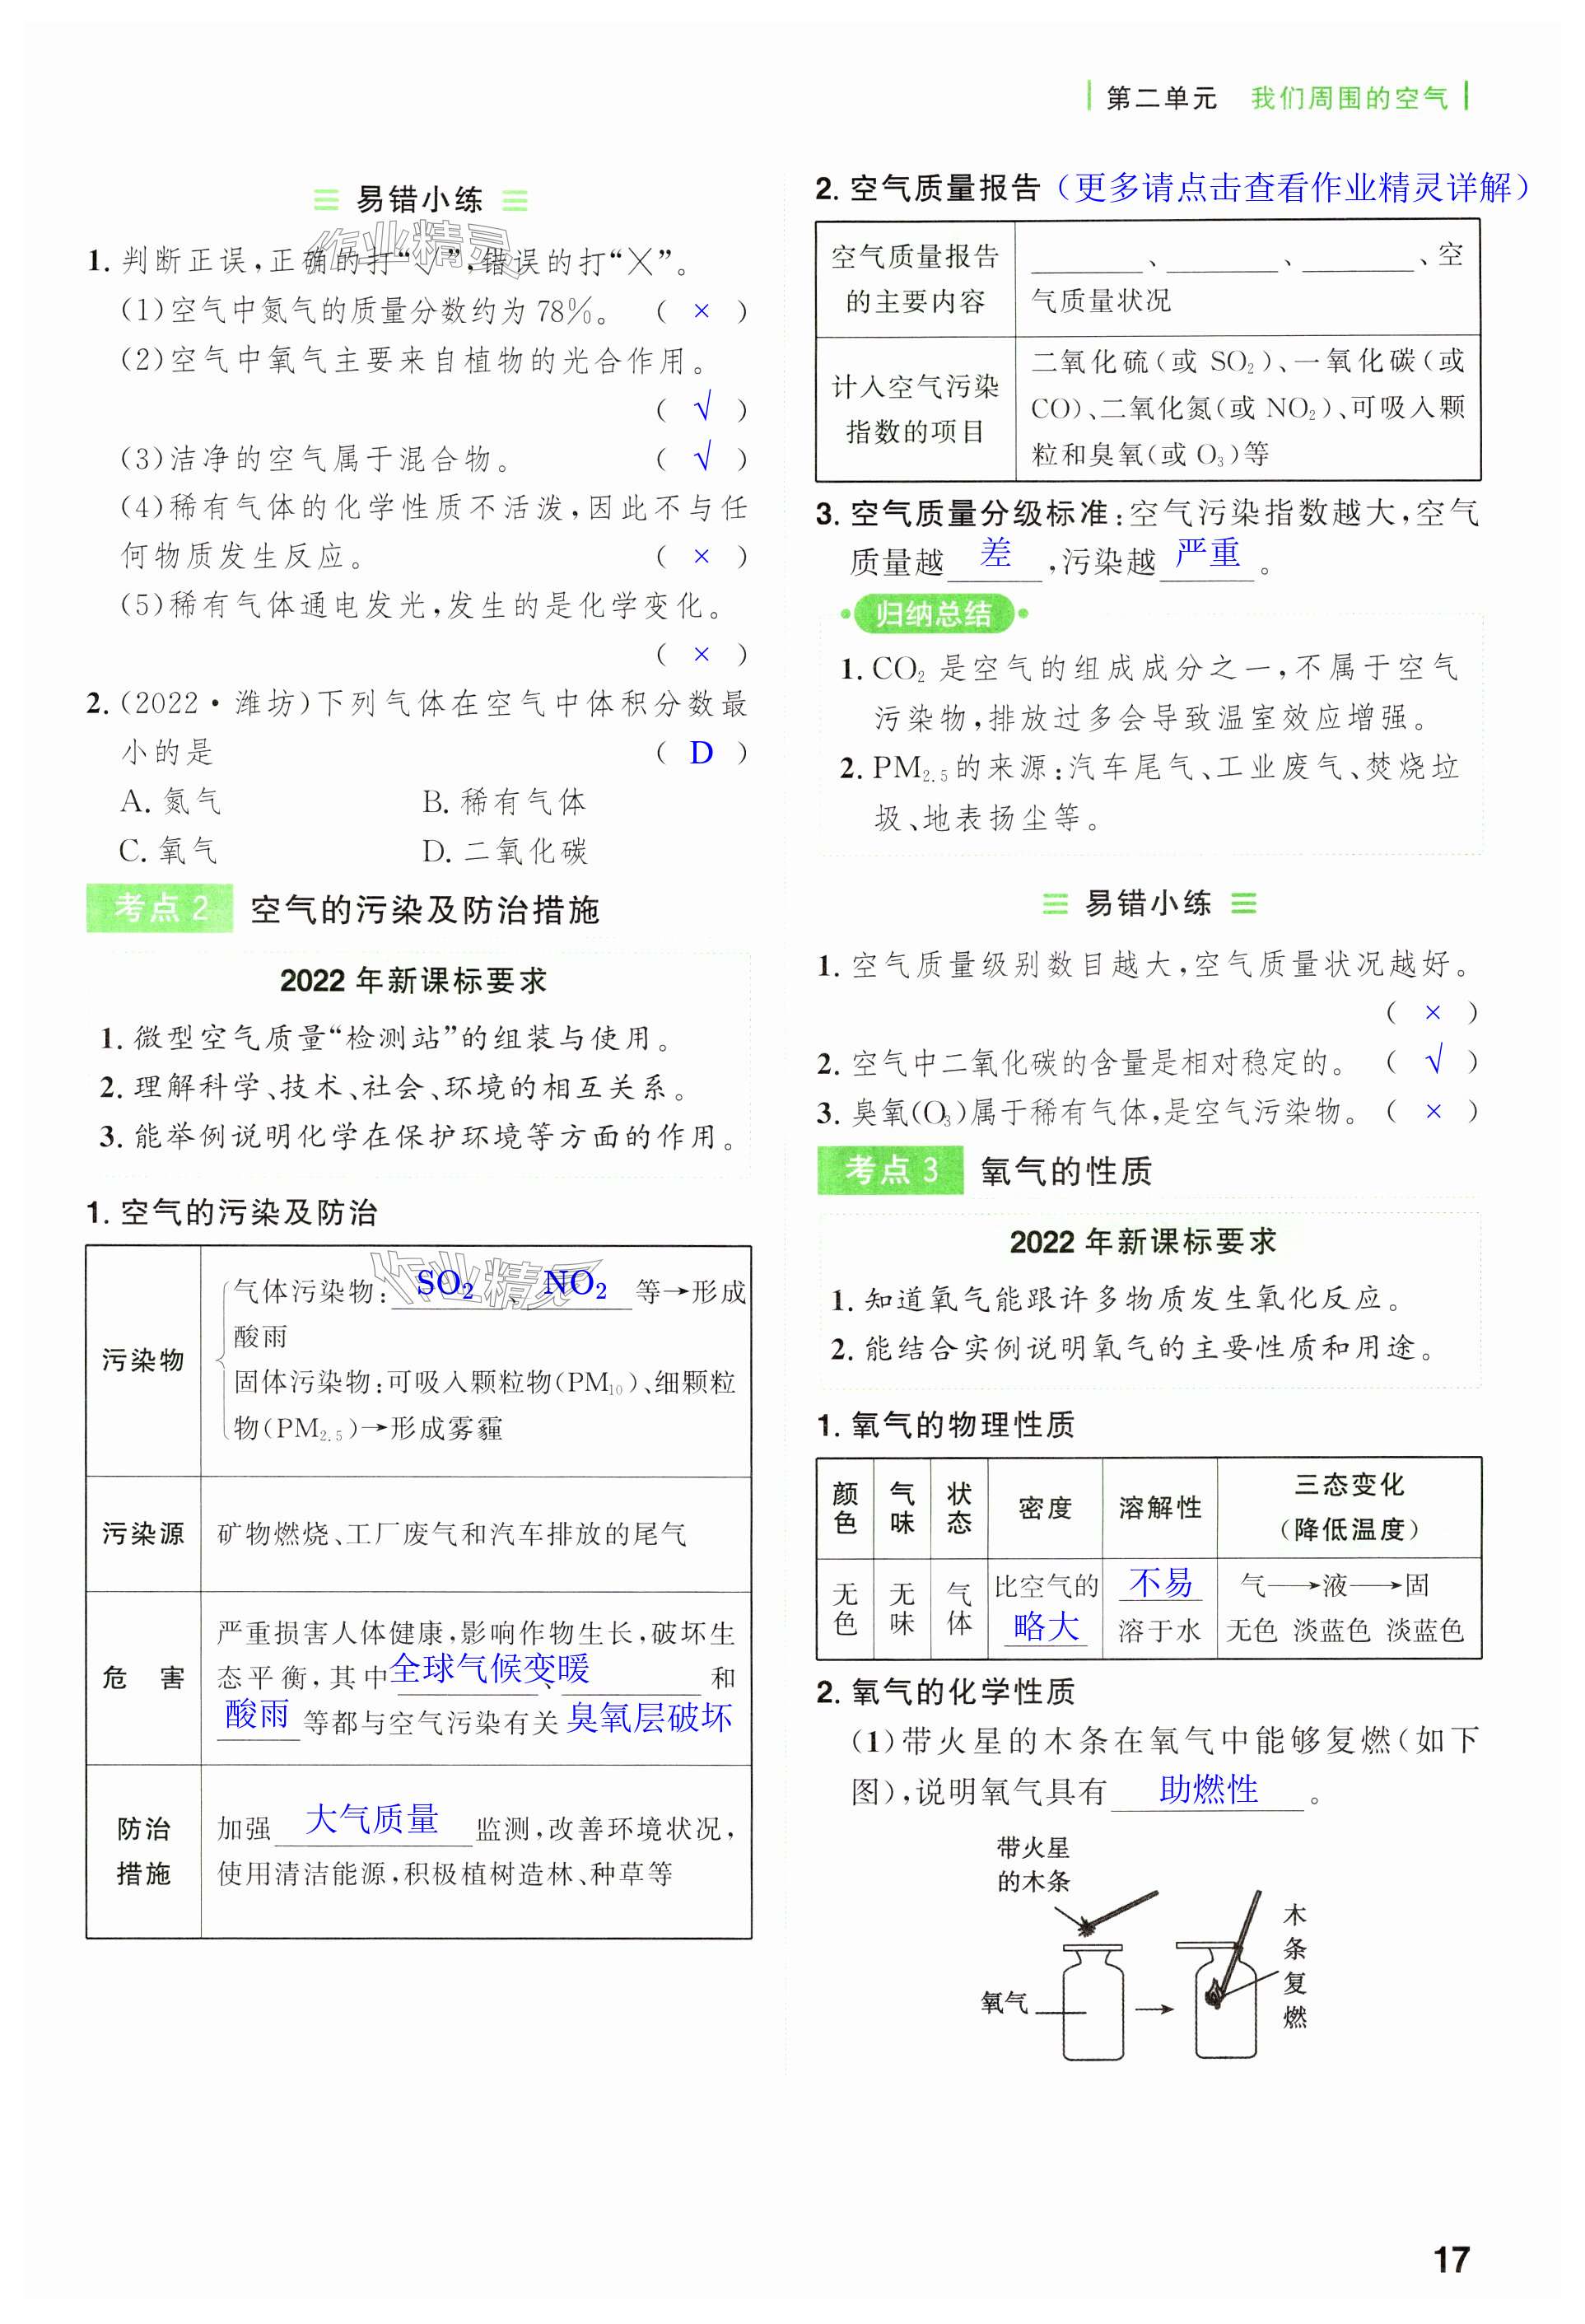 第二单元 我们周围的空气
易错小练
作业精灵
1. 判断正误,正确的打“√”,错误的打“×”。
(1)空气中氮气的质量分数约为78%。 ( × )
(2)空气中氧气主要来自植物的光合作用。
( √ )
(3)洁净的空气属于混合物。 ( √ )
(4)稀有气体的化学性质不活泼,因此不与任
何物质发生反应。 ( × )
(5)稀有气体通电发光,发生的是化学变化。
( × )
2. (2022·潍坊)下列气体在空气中体积分数最
小的是 ( D )
A. 氮气 B. 稀有气体
C. 氧气 D. 二氧化碳
考点2 空气的污染及防治措施
2022年新课标要求
1. 微型空气质量“检测站”的组装与使用。
2. 理解科学、技术、社会、环境的相互关系。
3. 能举例说明化学在保护环境等方面的作用。
1. 空气的污染及防治
作业精灵
污染物
气体污染物: SO₂ 、 NO₂ 等→形成
酸雨
固体污染物:可吸入颗粒物(PM₁₀)、细颗粒
物(PM₂.₅)→形成雾霾
污染源 矿物燃烧、工厂废气和汽车排放的尾气
危 害
严重损害人体健康,影响作物生长,破坏生
态平衡,其中全球气候变暖、 和
酸雨 等都与空气污染有关 臭氧层破坏
防治
措施
加强 大气质量 监测,改善环境状况,
使用清洁能源,积极植树造林、种草等
2. 空气质量报告(更多请点击查看作业精灵详解)
空气质量报告
的主要内容
、 、 、空
气质量状况
计入空气污染
指数的项目
二氧化硫(或 SO₂)、一氧化碳(或
CO)、二氧化氮(或 NO₂)、可吸入颗
粒和臭氧(或 O₃)等
3. 空气质量分级标准:空气污染指数越大,空气
质量越 差 ,污染越 严重 。
归纳总结
1. CO₂ 是空气的组成成分之一,不属于空气
污染物,排放过多会导致温室效应增强。
2. PM₂.₅的来源:汽车尾气、工业废气、焚烧垃
圾、地表扬尘等。
易错小练
1. 空气质量级别数目越大,空气质量状况越好。
( × )
2. 空气中二氧化碳的含量是相对稳定的。 ( √ )
3. 臭氧(O₃)属于稀有气体,是空气污染物。 ( × )
考点3 氧气的性质
2022年新课标要求
1. 知道氧气能跟许多物质发生氧化反应。
2. 能结合实例说明氧气的主要性质和用途。
1. 氧气的物理性质
颜色 气味 状态 密度 溶解性 三态变化
(降低温度)
无色 无味 气体 比空气的 略大 不易 溶于水 气→液→固
无色 淡蓝色 淡蓝色
2. 氧气的化学性质
(1)带火星的木条在氧气中能够复燃(如下
图),说明氧气具有 助燃性 。
带火星
的木条
氧气
木条复燃
17